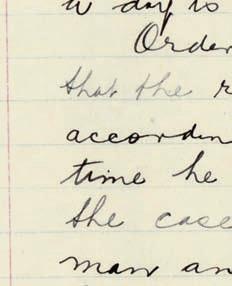 day is
Order
that the r
accordin
time he
the case
man an